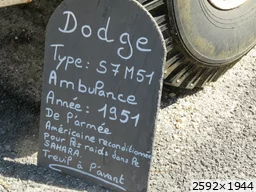 Dodge
Type: S7M51
Ambulance
Année: 1951
De l'armée
Américaine reconditionnée
pour les raids dans le
SAHARA.
Treuil à l'avant
2592×1944